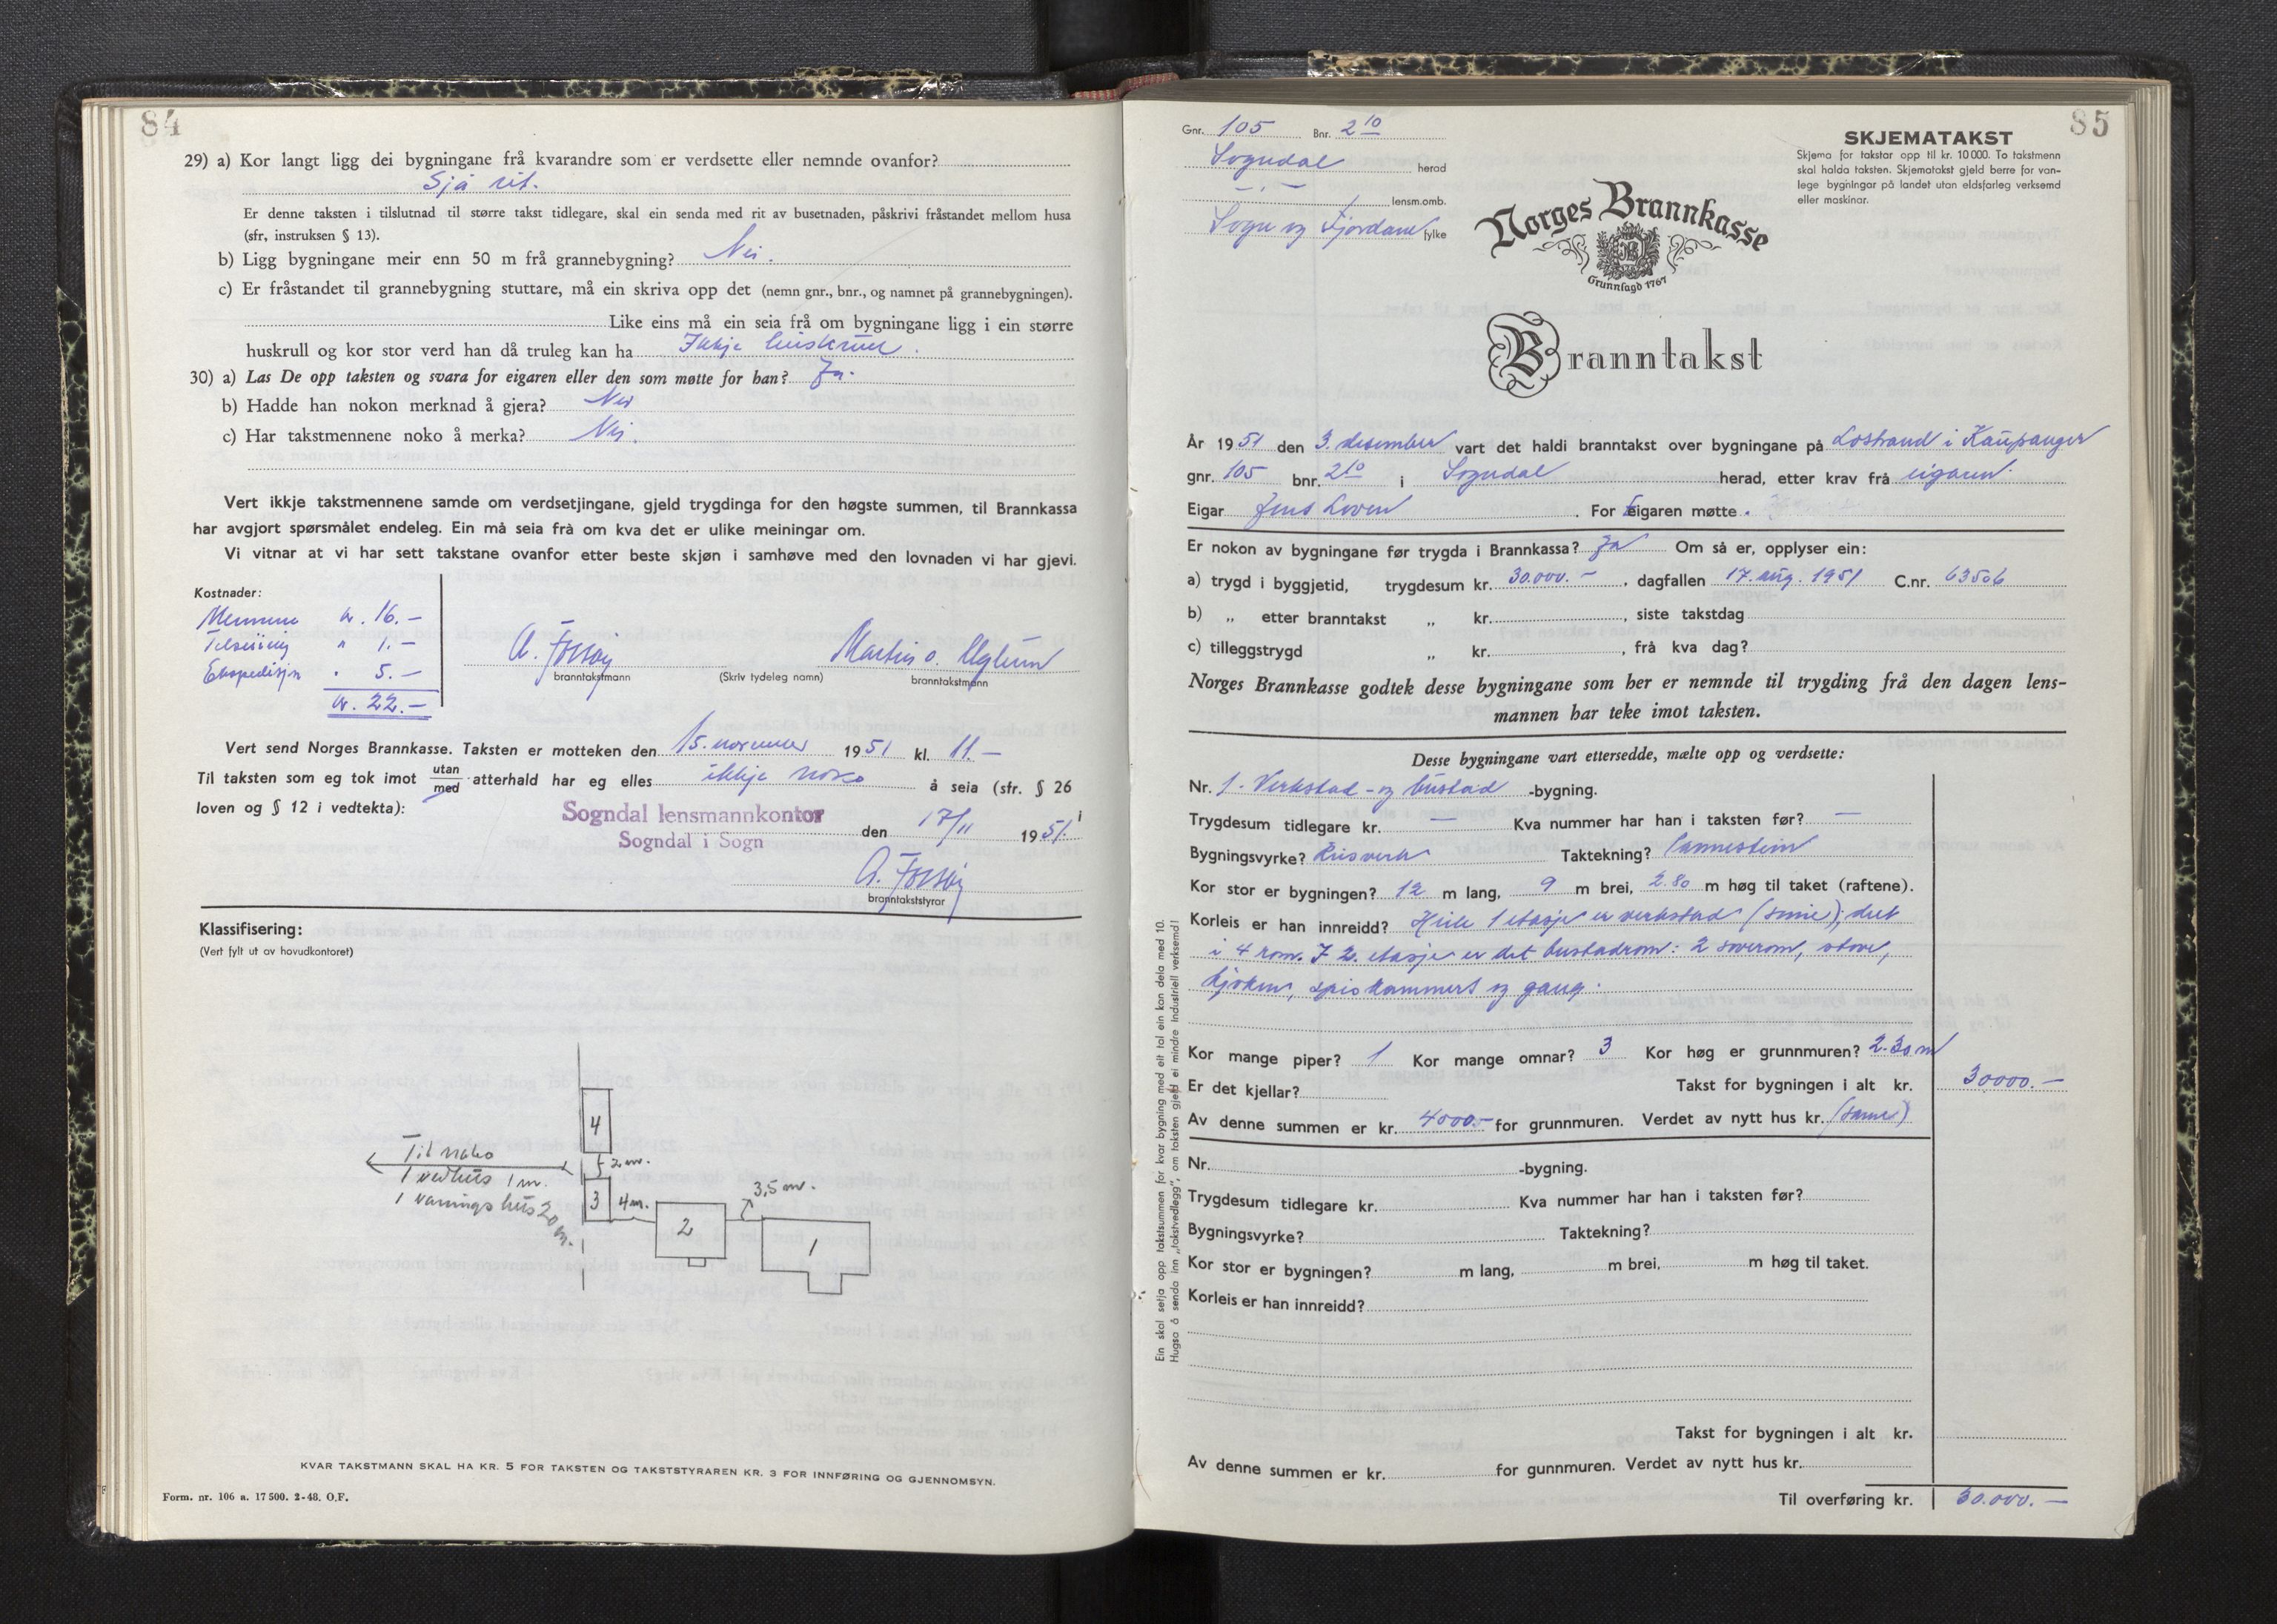 84
29) a) Kor langt ligg dei bygningane frå kvarandre som er verdsette eller nemnde ovanfor?
Sjå rit.
Er denne taksten i tilslutnad til større takst tidlegare, skal ein senda med rit av busetnaden, påskrivi fråstandet mellom husa
(sfr, instruksen § 13).
b) Ligg bygningane meir enn 50 m frå grannebygning? Nei.
c) Er fråstandet til grannebygning stuttare, må ein skriva opp det (nemn gnr., bnr., og namnet på grannebygningen).
Like eins må ein seia frå om bygningane ligg i ein større
huskrull og kor stor verd han då truleg kan ha Ikkje huskrull.
30) a) Las De opp taksten og svara for eigaren eller den som møtte for han? Ja.
b) Hadde han nokon merknad å gjera? Nei
c) Har takstmennene noko å merka? Nei.
Vert ikkje takstmennene samde om verdsetjingane, gjeld trygdinga for den høgste summen, til Brannkassa
har avgjort spørsmålet endeleg. Ein må seia frå om kva det er ulike meiningar om.
Vi vitnar at vi har sett takstane ovanfor etter beste skjøn i samhøve med den lovnaden vi har gjevi.
Kostnader:
Mennene kr. 16.—
" 1.—
Ekspedisjon " 5.—
kr. 22.—
branntakstmann (Skriv tydeleg namn) branntakstmann
Martin O.
Vert send Norges Brannkasse. Taksten er motteken den 15. november 1951 kl. 11.—
Til taksten som eg tok imot utan/med atterhald har eg elles ikkje noko å seia (sfr. § 26
loven og § 12 i vedtekta):
Sogndal lensmannkontor
Sogndal i Sogn
i
den 17/11 1951.
branntakststyrar
Klassifisering:
(Vert fylt ut av hovudkontoret)
4
2 m.
Til nabo
1 vedhus 1 m.
1 våningshus 20 m.
3
4 m.
2
3,5 m.
1
KVAR TAKSTMANN SKAL HA KR. 5 FOR TAKSTEN OG TAKSTSTYRAREN KR. 3 FOR INNFØRING OG GJENNOMSYN.
Form. nr. 106 a. 17 500. 2-48. O.F.
85
Gnr. 105 Bnr. 210
Sogndal herad
— " — lensm.omb.
Sogn og Fjordane fylke
SKJEMATAKST
Skjema for takstar opp til kr. 10 000. To takstmenn
skal halda taksten. Skjematakst gjeld berre for van-
lege bygningar på landet utan eldsfarleg verksemd
eller maskinar.
Norges Brannkasse
Grunnlagd 1767
Branntakst
År 1951 den 3. desember vart det haldi branntakst over bygningane på Lostrand i Kaupanger
gnr. 105 bnr. 210 i Sogndal herad, etter krav frå eigaren.
Eigar Jens Loven. For Eigaren møtte.
Er nokon av bygningane før trygda i Brannkassa? Ja Om så er, opplyser ein:
a) trygd i byggjetid, trygdesum kr. 30.000.—, dagfallen 17. aug. 1951 C.nr. 63506
b) „ etter branntakst „ kr. , siste takstdag
c) tilleggstrygd „ kr. , frå kva dag?
Norges Brannkasse godtek desse bygningane som her er nemnde til trygding frå den dagen lens-
mannen har teke imot taksten.
Desse bygningane vart ettersedde, mælte opp og verdsette:
Nr. 1. Verkstad- og bustad -bygning.
Trygdesum tidlegare kr. — Kva nummer har han i taksten før? —
Bygningsvyrke? Taktekning?
Kor stor er bygningen? 12 m lang, 9 m brei, 2.80 m høg til taket (raftene).
Korleis er han innreidd? Heile 1 etasje er verkstad (smie); delt
i 4 rom. I 2. etasje er det bustadrom: 2 soverom, stove,
kjøken, spiskammers og gang.
Kor mange piper? 1 Kor mange omnar? 3 Kor høg er grunnmuren? 2.30 m
Er det kjellar? Takst for bygningen i alt kr. 30000.—
Av denne summen er kr. 4000.— for grunnmuren. Verdet av nytt hus kr. (same)
Nr. -bygning.
Trygdesum tidlegare kr. Kva nummer har han i taksten før?
Bygningsvyrke? Taktekning?
Kor stor er bygningen? m lang, m brei, m høg til taket.
Korleis er han innreidd?
Takst for bygningen i alt kr.
Av denne summen er kr. for gunnmuren. Verdet av nytt hus kr.
Til overføring kr. 30.000.—
Ein skal setja opp takstsummen for kvar bygning med eit tal ein kan dela med 10.
Hugsa å senda inn „takstvedlegg", om taksten gjeld ei mindre industriell verksemd!